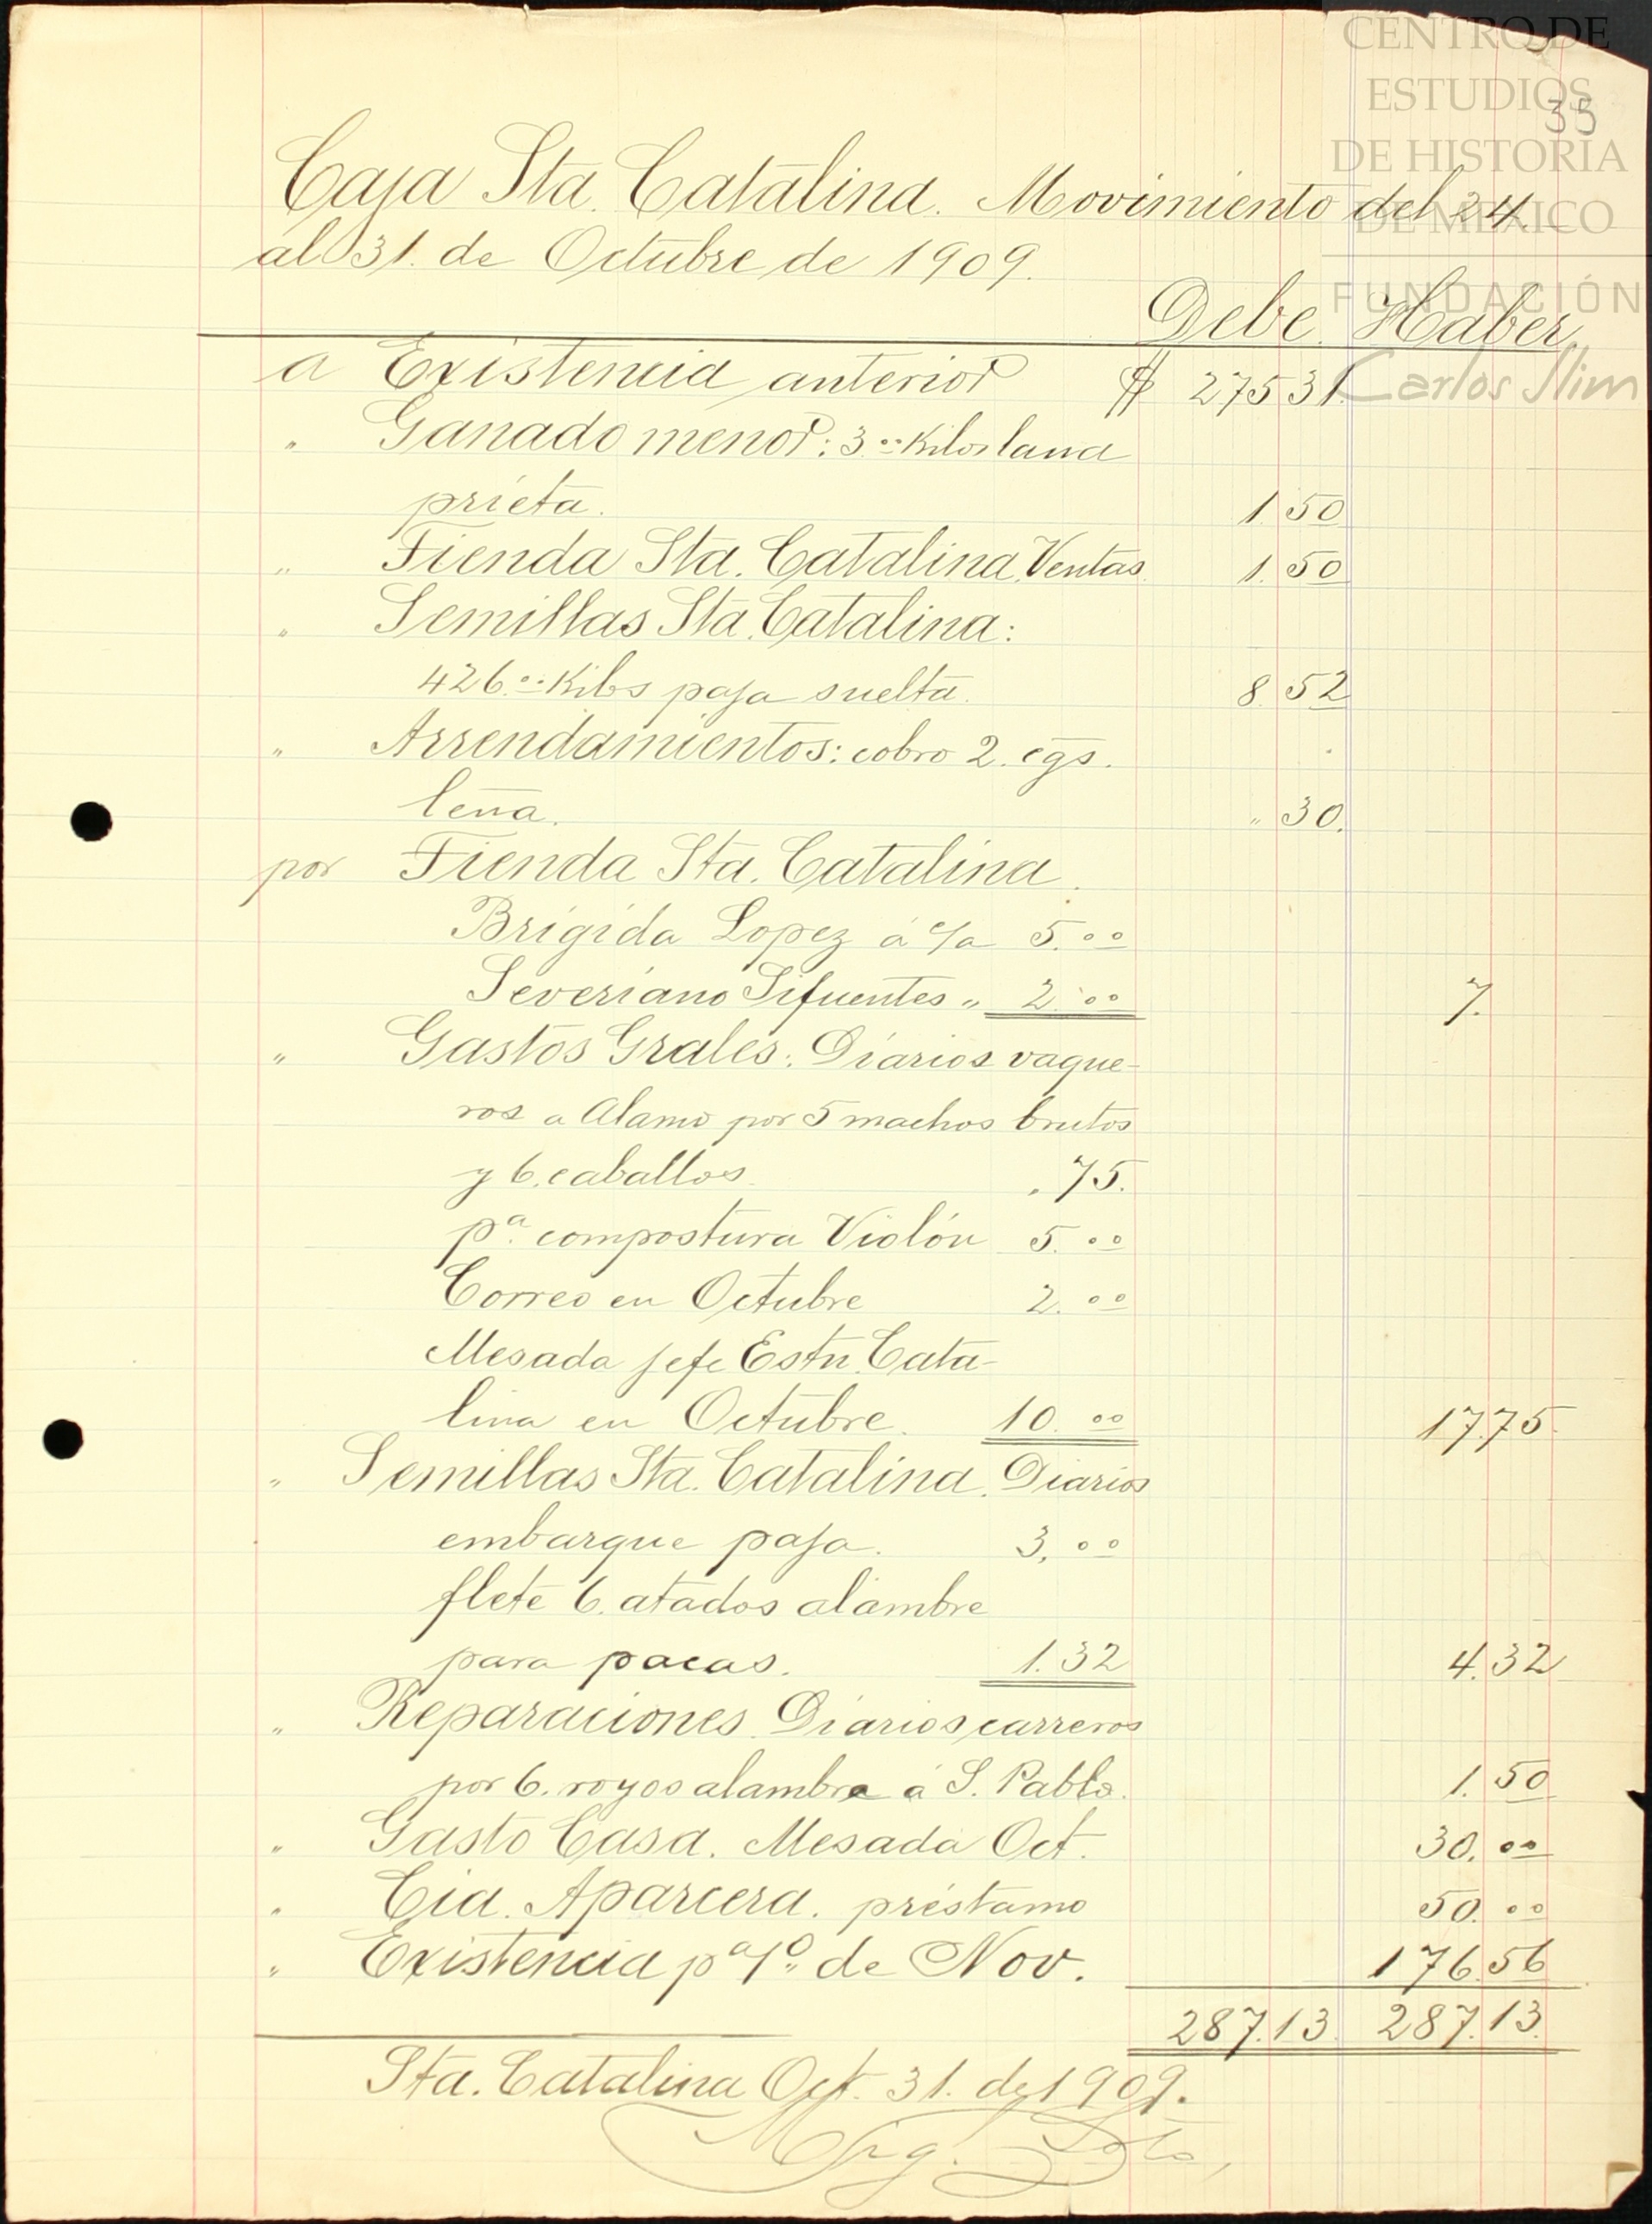 CENTRO DE
ESTUDIOS
35
DE HISTORIA
DE MEXICO
FUNDACIÓN
Carlos Slim
Caja Sta. Catalina. Movimiento del 24.
al 31. de Octubre de 1909.
Debe. Haber.
a Existencia anterior $ 275 31.
" Ganado menor: 3.00 Kilos lana
prieta. 1. 50
" Tienda Sta. Catalina. Ventas. 1. 50
" Semillas Sta. Catalina:
426.00 Kilos paja suelta. 8. 52
" Arrendamientos: cobro 2. cgs.
leña. " 30.
por Tienda Sta. Catalina.
Brigida Lopez á c/a 5.00
Severiano Sifuentes " 2.00 7.
" Gastos Grales: Diarios vaque-
ros a Alamo por 5 machos brutos
y 6. caballos. .75.
pa. compostura Violón 5.00
Correo en Octubre 2.00
Mesada jefe Estn. Cata-
lina en Octubre. 10.00 17.75.
" Semillas Sta. Catalina. Diarios
embarque paja. 3.00
flete 6. atados alambre
para pacas. 1.32 4.32
" Reparaciones. Diarios carreros
por 6. royos alambre á S. Pablo. 1. 50
" Gasto Casa. Mesada Oct. 30.00
" Cia. Aparcera. préstamo 50.00
" Existencia pa. 1o. de Nov. 176.56
287.13. 287.13.
Sta. Catalina Oct. 31. de 1909.